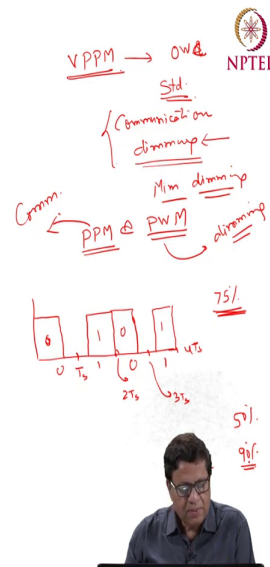 VPPM → OWC
NPTEL
Std.
Communication
dimming ←
Min dimming
Comm.
PPM & PWM
dimming
75%
0 1 0 1
0 Ts 1 0 1 4Ts
2Ts 3Ts
50%
90%